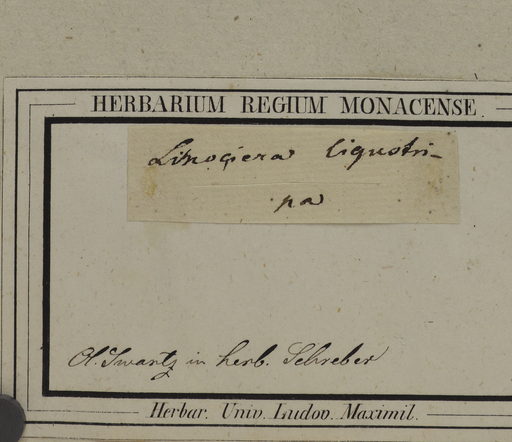 HERBARIUM REGIUM MONACENSE.
Linociera ligustri-
na
Ol. Swartz in herb. Schreber
Herbar. Univ. Ludov. Maximil.